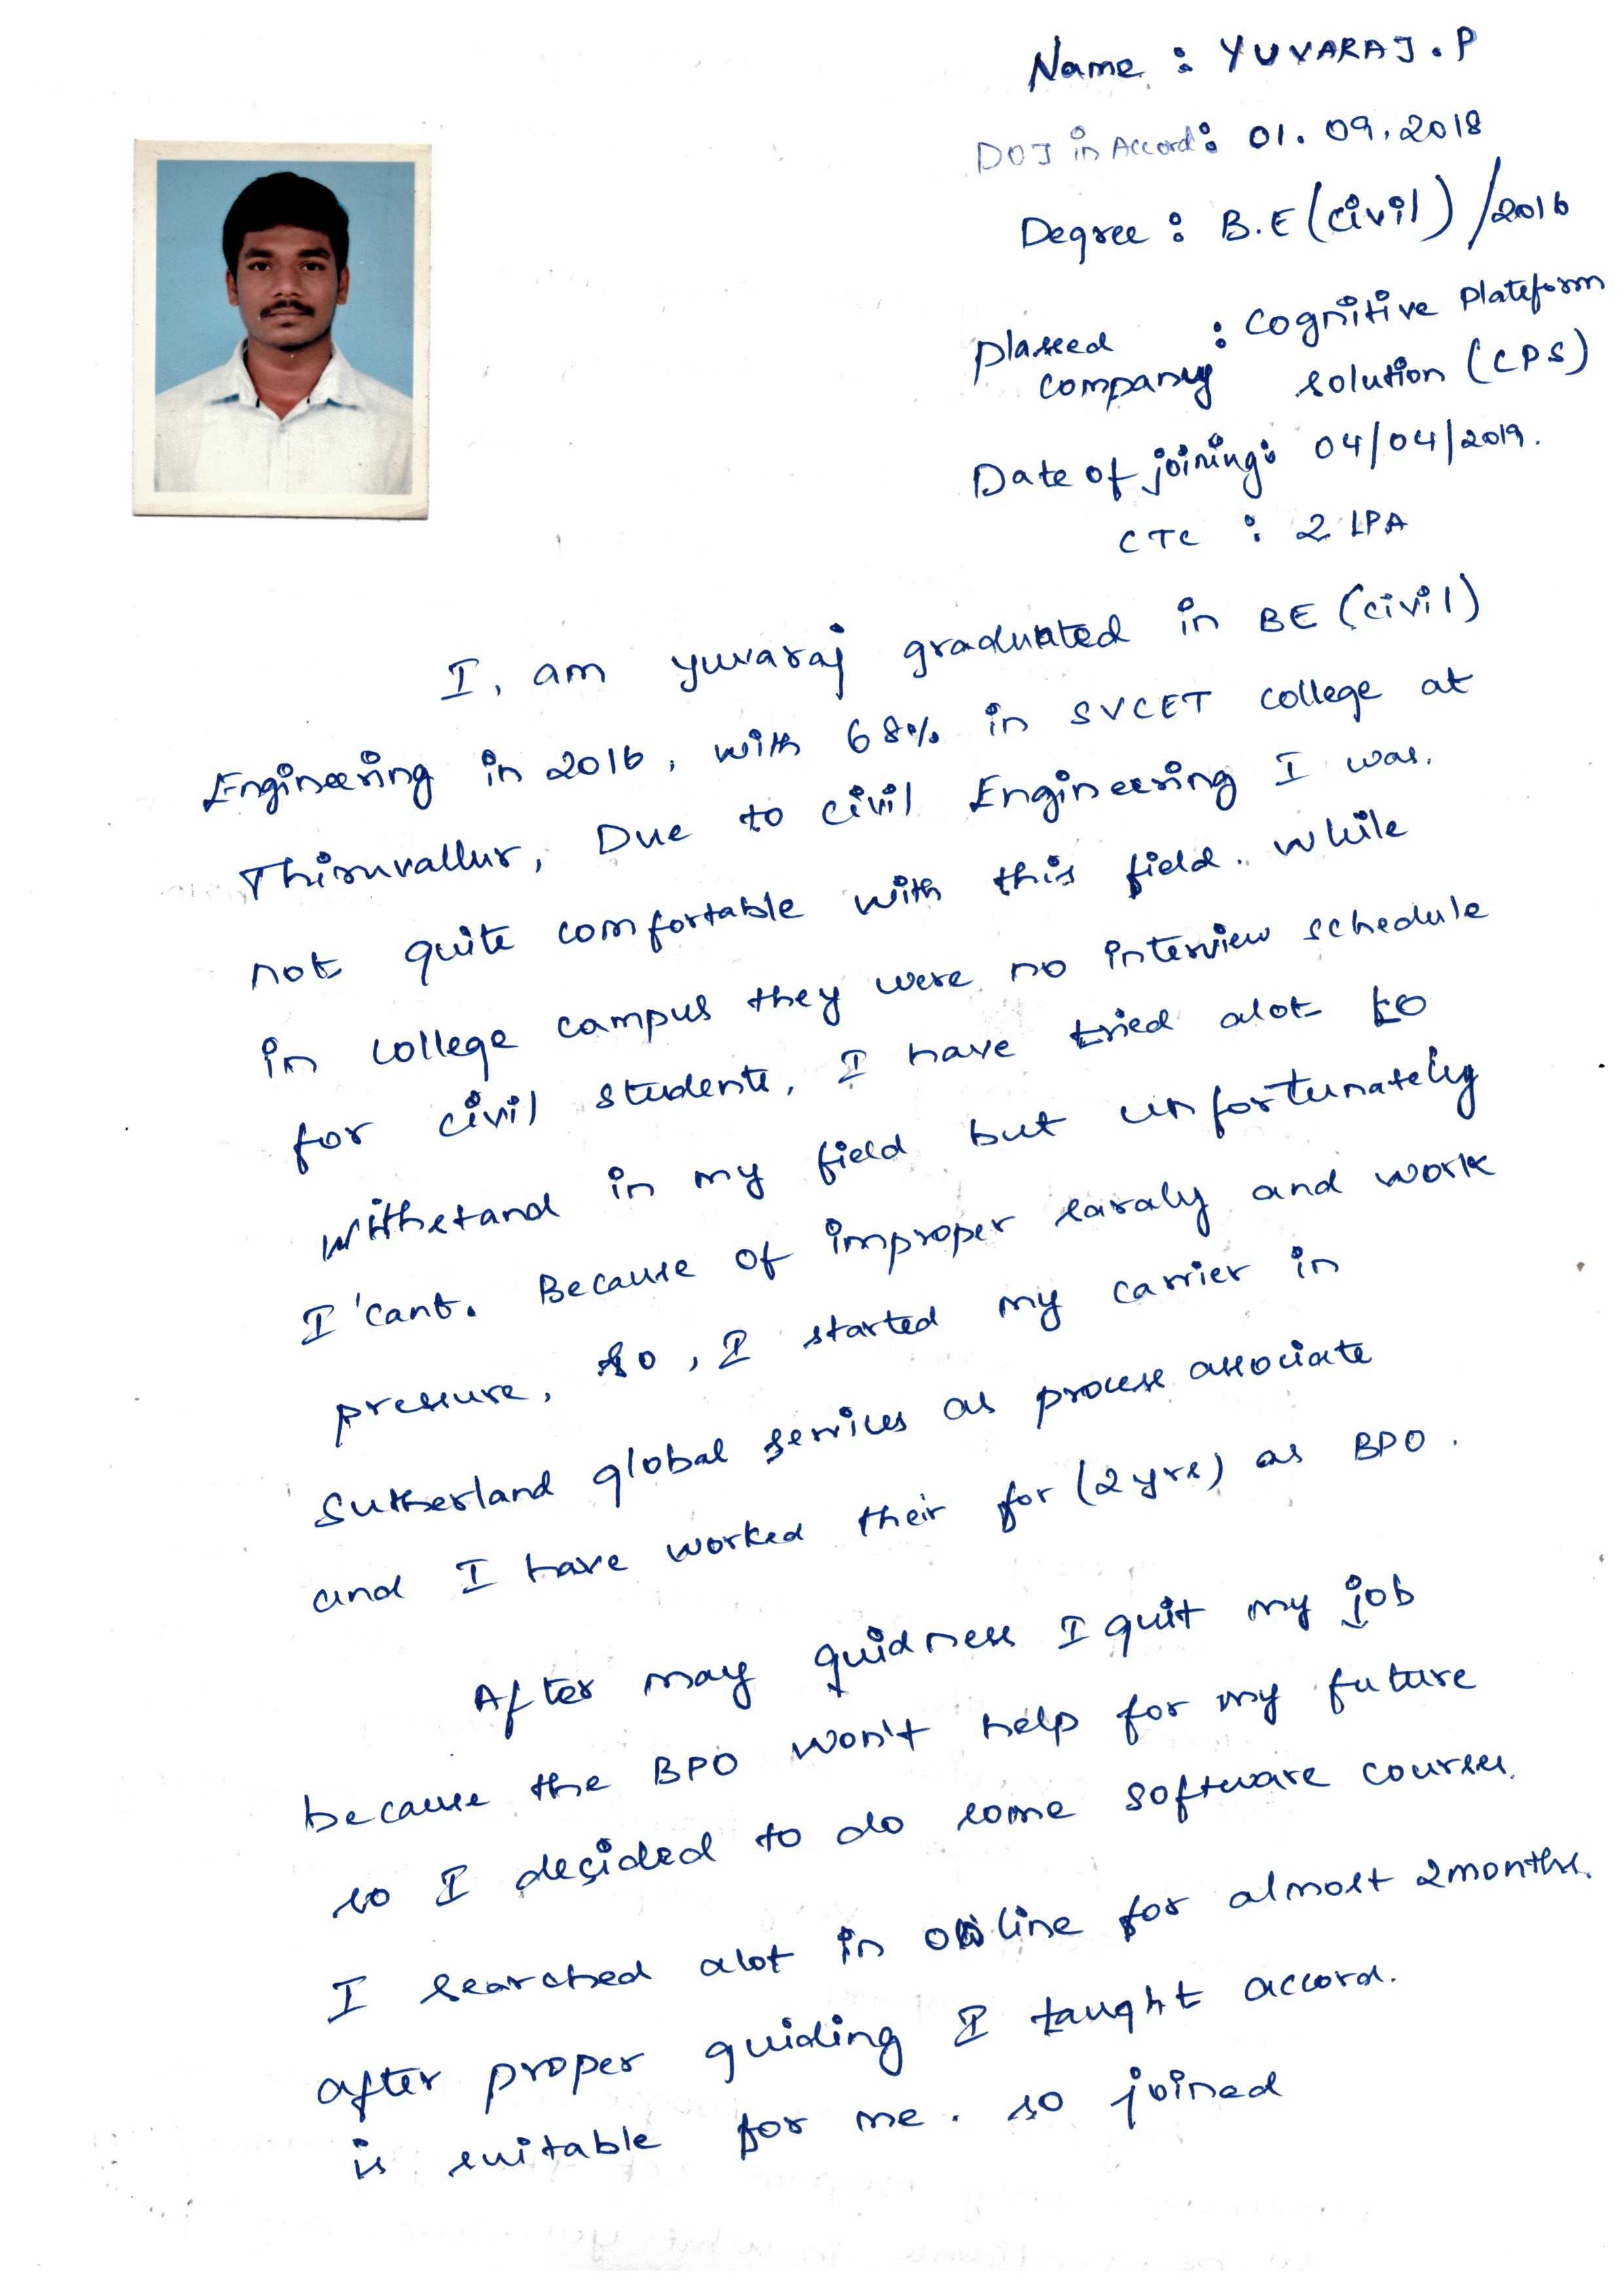 Name : YUVARAJ.P
DOJ in Accord : 01.09.2018
Degree : B.E (civil) /2016
plassed : Cognitive Plateform
company solution (CPS)
Date of joining : 04/04/2019.
CTC : 2 LPA
I, am yuvaraj graduated in BE (civil)
Engineering in 2016, with 68% in SVCET college at
Thiruvallur, Due to civil Engineering I was.
not quite comfortable with this field. while
in college campus they were no interview schedule
for civil students, I have tried alot to
withstand in my field but unfortunately
I 'cant. Because of improper saraly and work
pressure, so, I started my carrier in
Sutherland global services as process associate
and I have worked their for (2 yrs) as BPO.
After may guidness I quit my job
because the BPO won't help for my future
so I decided to do some software courses.
I searched alot in online for almost 2months.
after proper guiding I taught accord.
is suitable for me. so joined